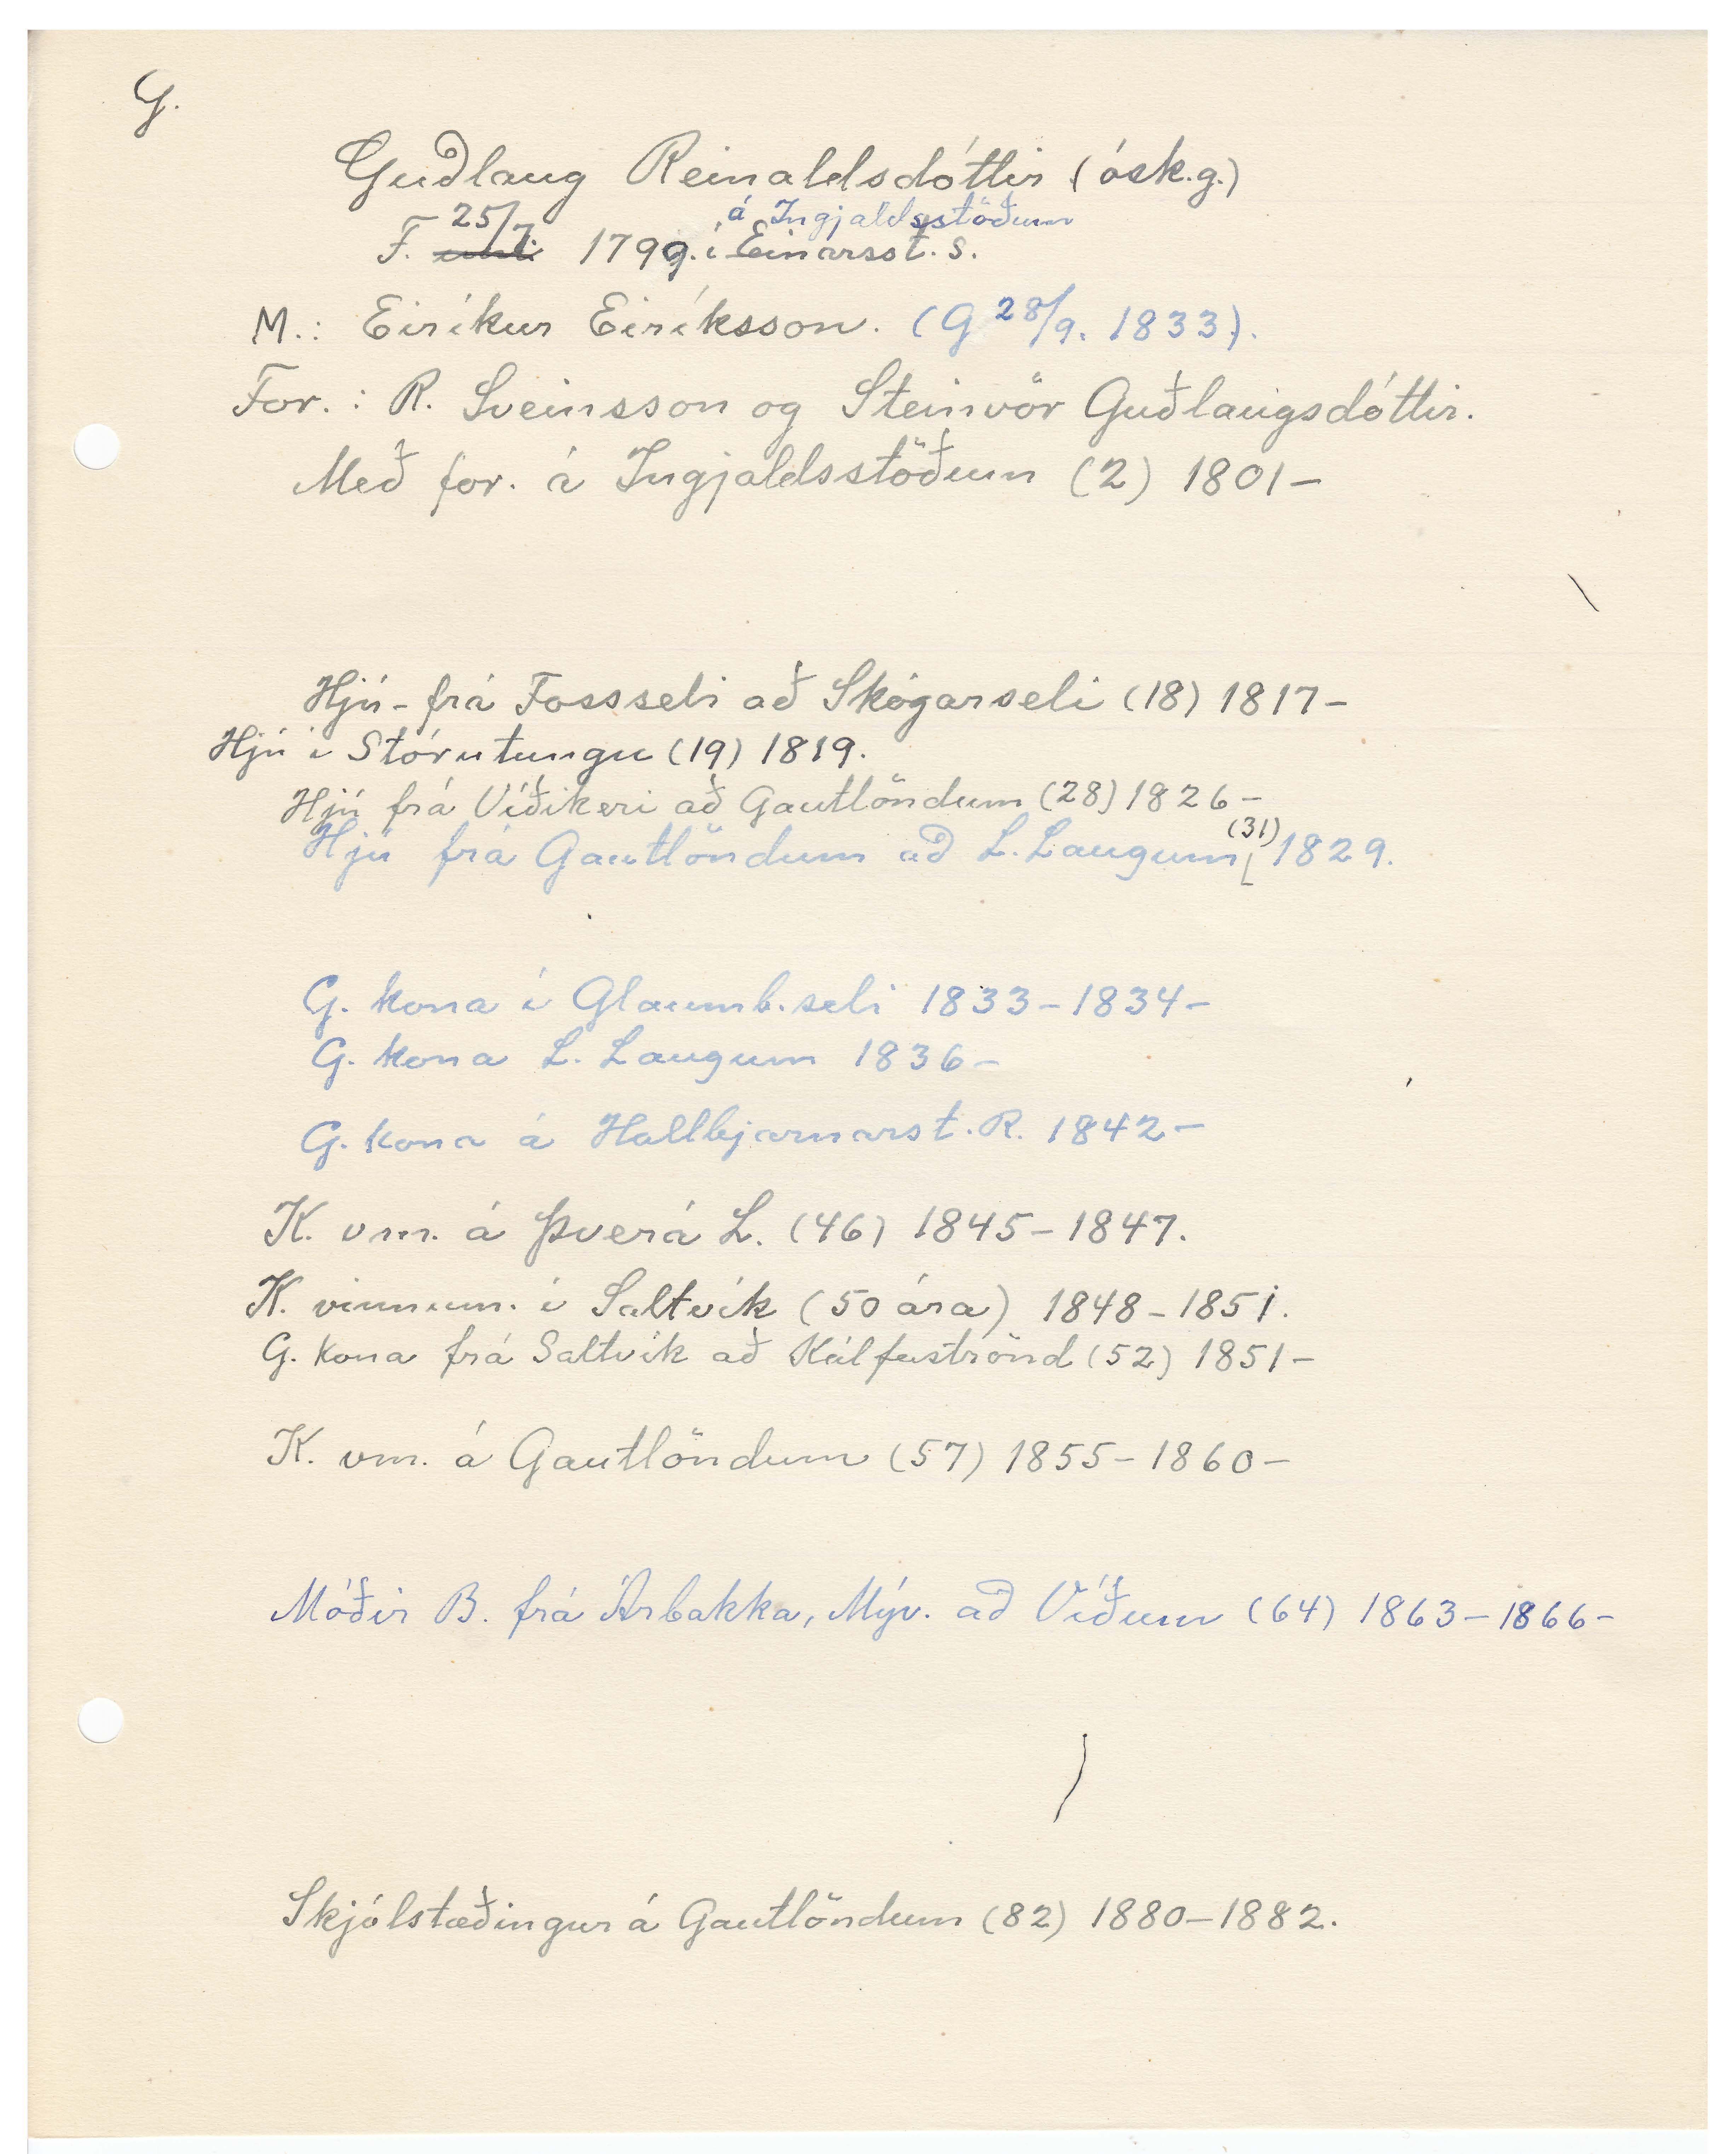 G.
Guðlaug Reinaldsdóttir (ósk.g.)
25/7. á Ingjaldsstöðum
F. 1799. í Einarsst. S.
M.: Eiríkur Eiríksson. (G 28/9. 1833).
For.: R. Sveinsson og Steinvör Guðlaugsdóttir.
Með for. á Ingjaldsstöðum (2) 1801-
Hjú - frá Fossseli að Skógarseli (18) 1817-
Hjú í Stórutungu (19) 1819.
Hjú frá Víðikeri að Gautlöndum (28) 1826-
Hjú frá Gautlöndum að L. Laugum (31) 1829.
G. kona í Glaumb.seli 1833-1834-
G. kona L. Laugum 1836-
G. kona á Hallbjarnarst. R. 1842-
K. vm. á Þverá L. (46) 1845-1847.
K. vinnum. í Saltvík (50 ára) 1848-1851.
G. kona frá Saltvík að Kálfaströnd (52) 1851-
K. vm. á Gautlöndum (57) 1855-1860-
Móðir B. frá Árbakka, Mýv. að Víðum (64) 1863-1866-
Skjólstæðingur á Gautlöndum (82) 1880-1882.